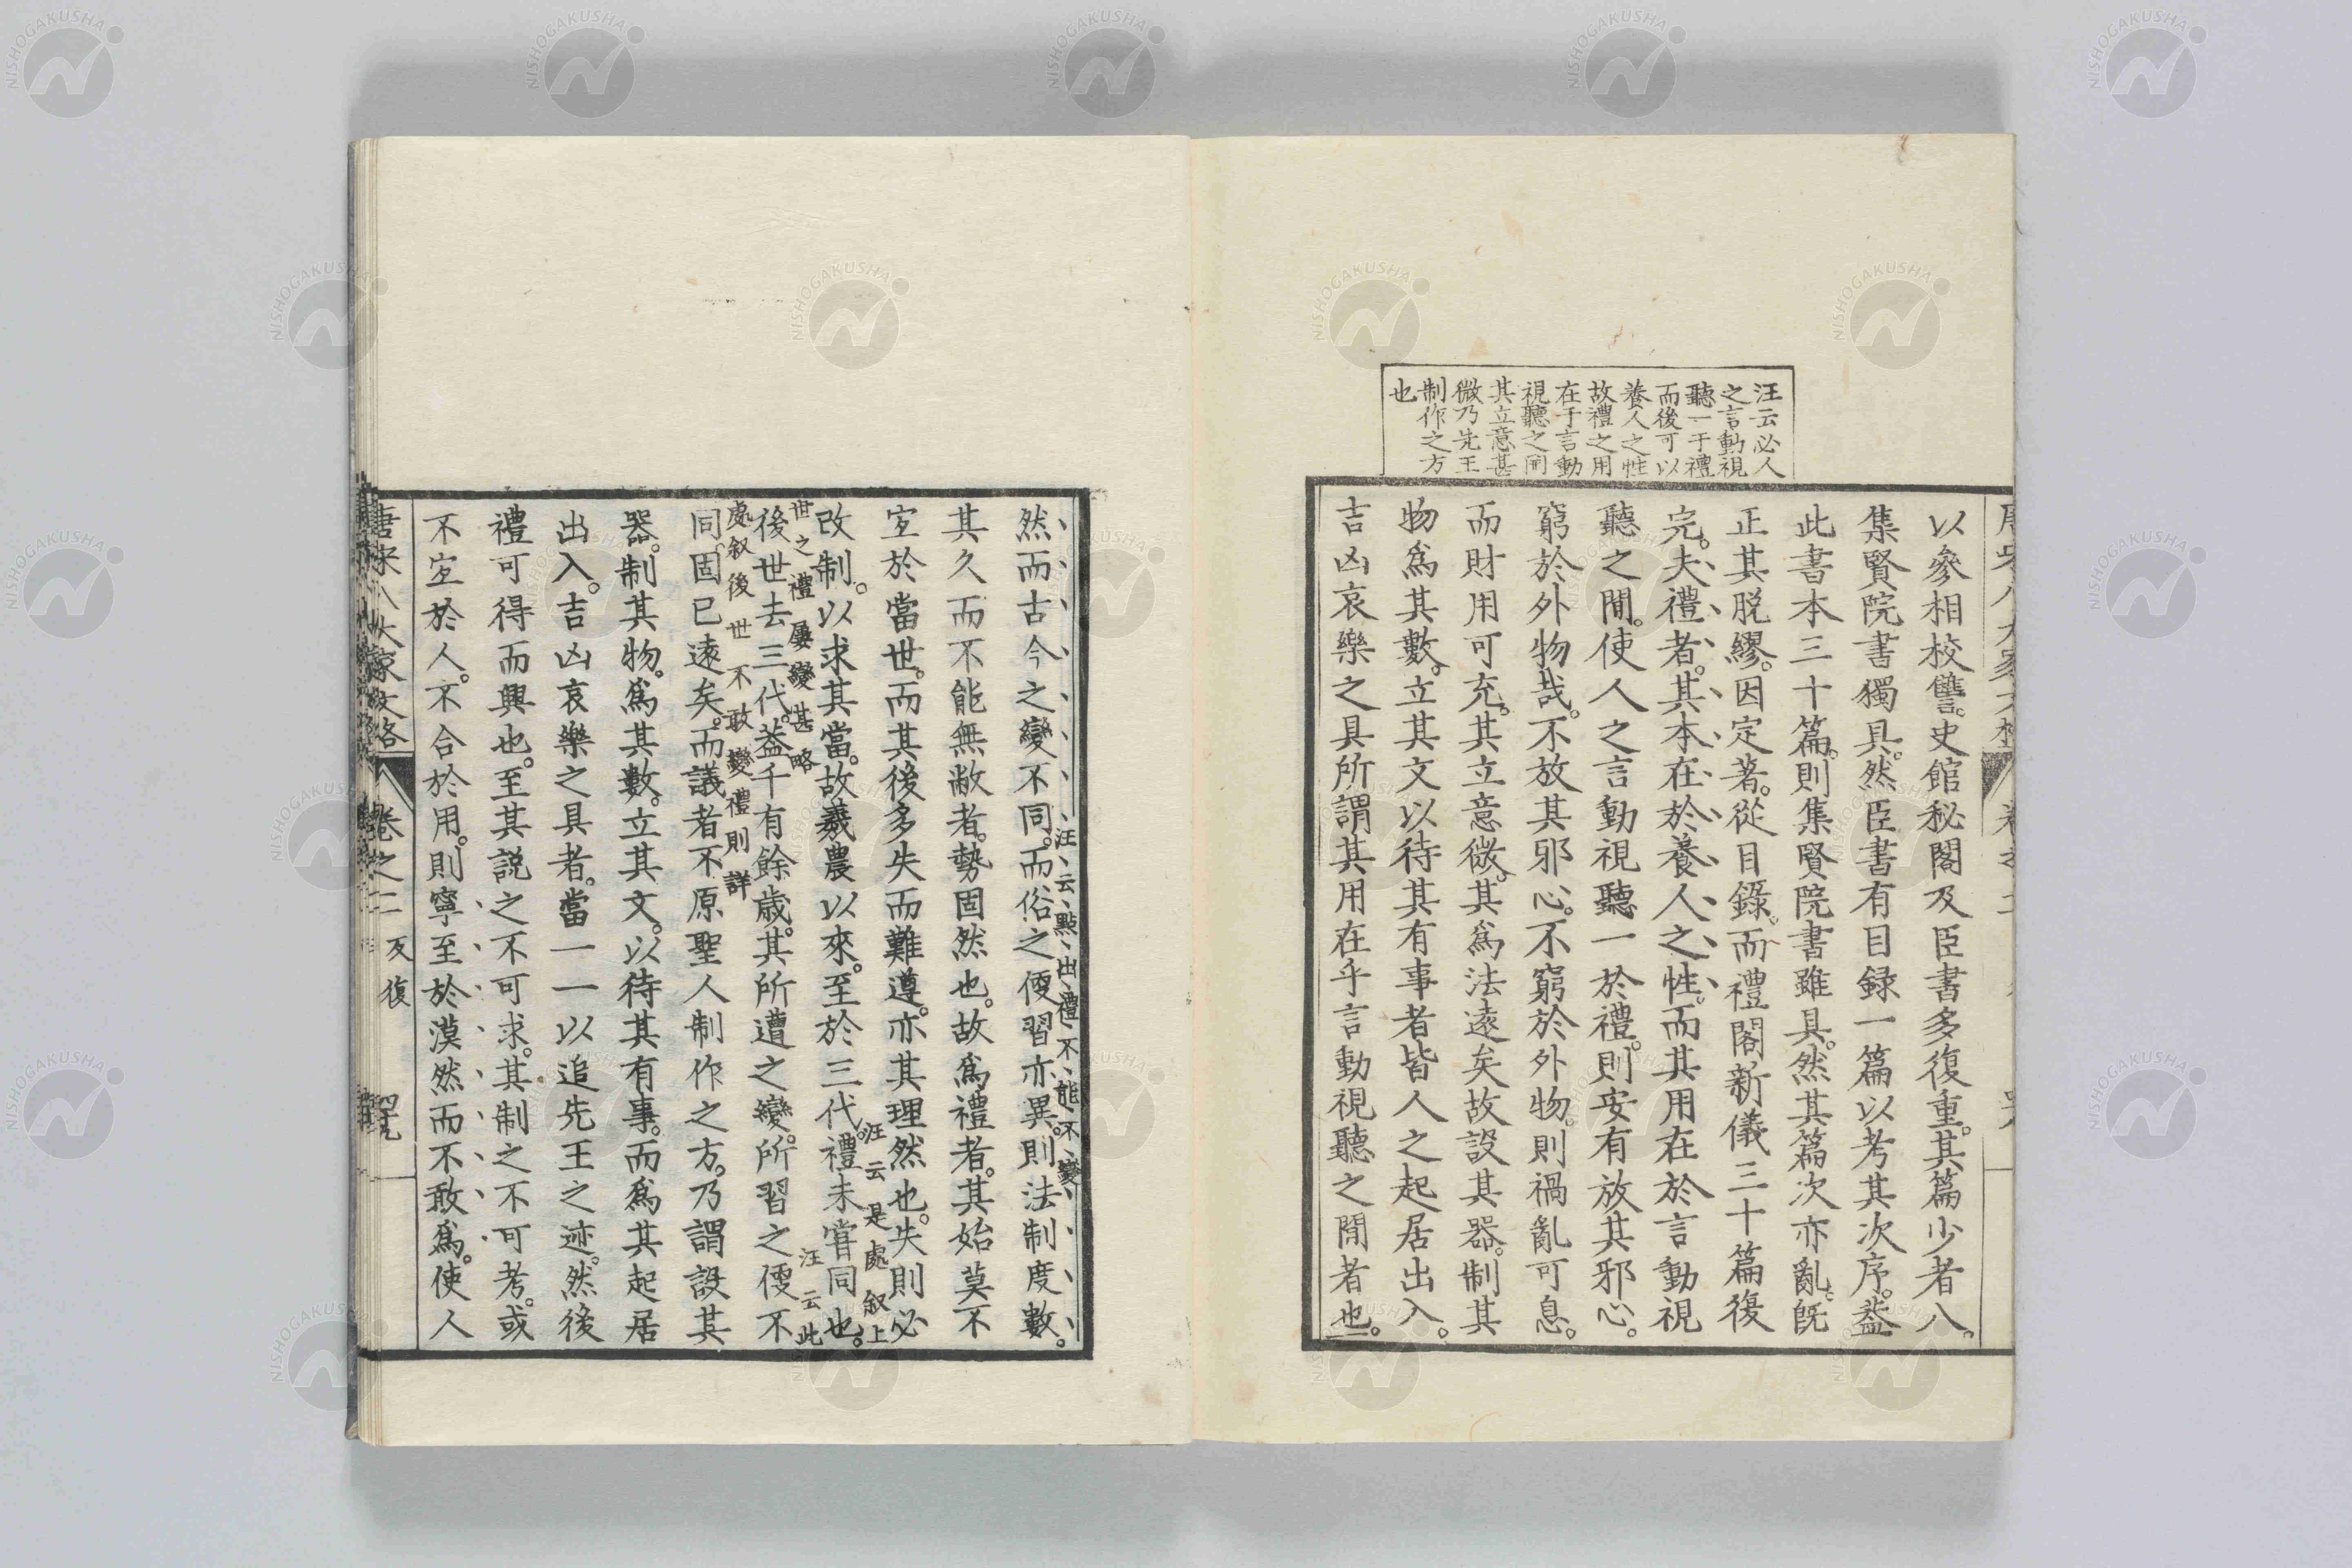 汪云必人
之言動視
聽一于禮
而後可以
養人之性
故禮之用
在于言動
視聽之間
其立意甚
微乃先王
制作之方
也
以參相校讐。史館秘閣及臣書多復重。其篇少者八。
集賢院書獨具。然臣書有目録一篇以考其次序。葢
此書本三十篇。則集賢院書雖具。然其篇次亦亂。旣
正其脫繆。因定著。從目錄。而禮閣新儀三十篇復
完。夫禮者。其本在於養人之性。而其用在於言動視
聽之間。使人之言動視聽一於禮。則安有放其邪心。
窮於外物哉。不放其邪心。不窮於外物。則禍亂可息。
而財用可充。其立意微。其爲法遠矣故設其器。制其
物爲其數。立其文以待其有事者皆人之起居出入。
吉凶哀樂之具所謂其用在乎言動視聽之間者也。
然而古今之變不同。而俗之便習亦異。則法制度數。
汪云點出禮不能不變
其久而不能無敝者。勢固然也。故爲禮者。其始莫不
宜於當世。而其後多失而難遵。亦其理然也。失則必
汪云是處叙上
改制。以求其當。故羲農以來。至於三代。禮未嘗同也。
世之禮屢變甚略
汪云此
後世去三代。葢千有餘歳。其所遭之變。所習之便不
處叙後世不敢變禮則詳
同。固已遠矣。而議者不原聖人制作之方。乃謂設其
器。制其物。爲其數。立其文。以待其有事。而爲其起居
出入。吉凶哀樂之具者。當一一以追先王之迹。然後
禮可得而興也。至其說之不可求。其制之不可考。或
不宜於人。不合於用。則寧至於漠然而不敢爲。使人
唐宋八大家文格
卷之二
反復